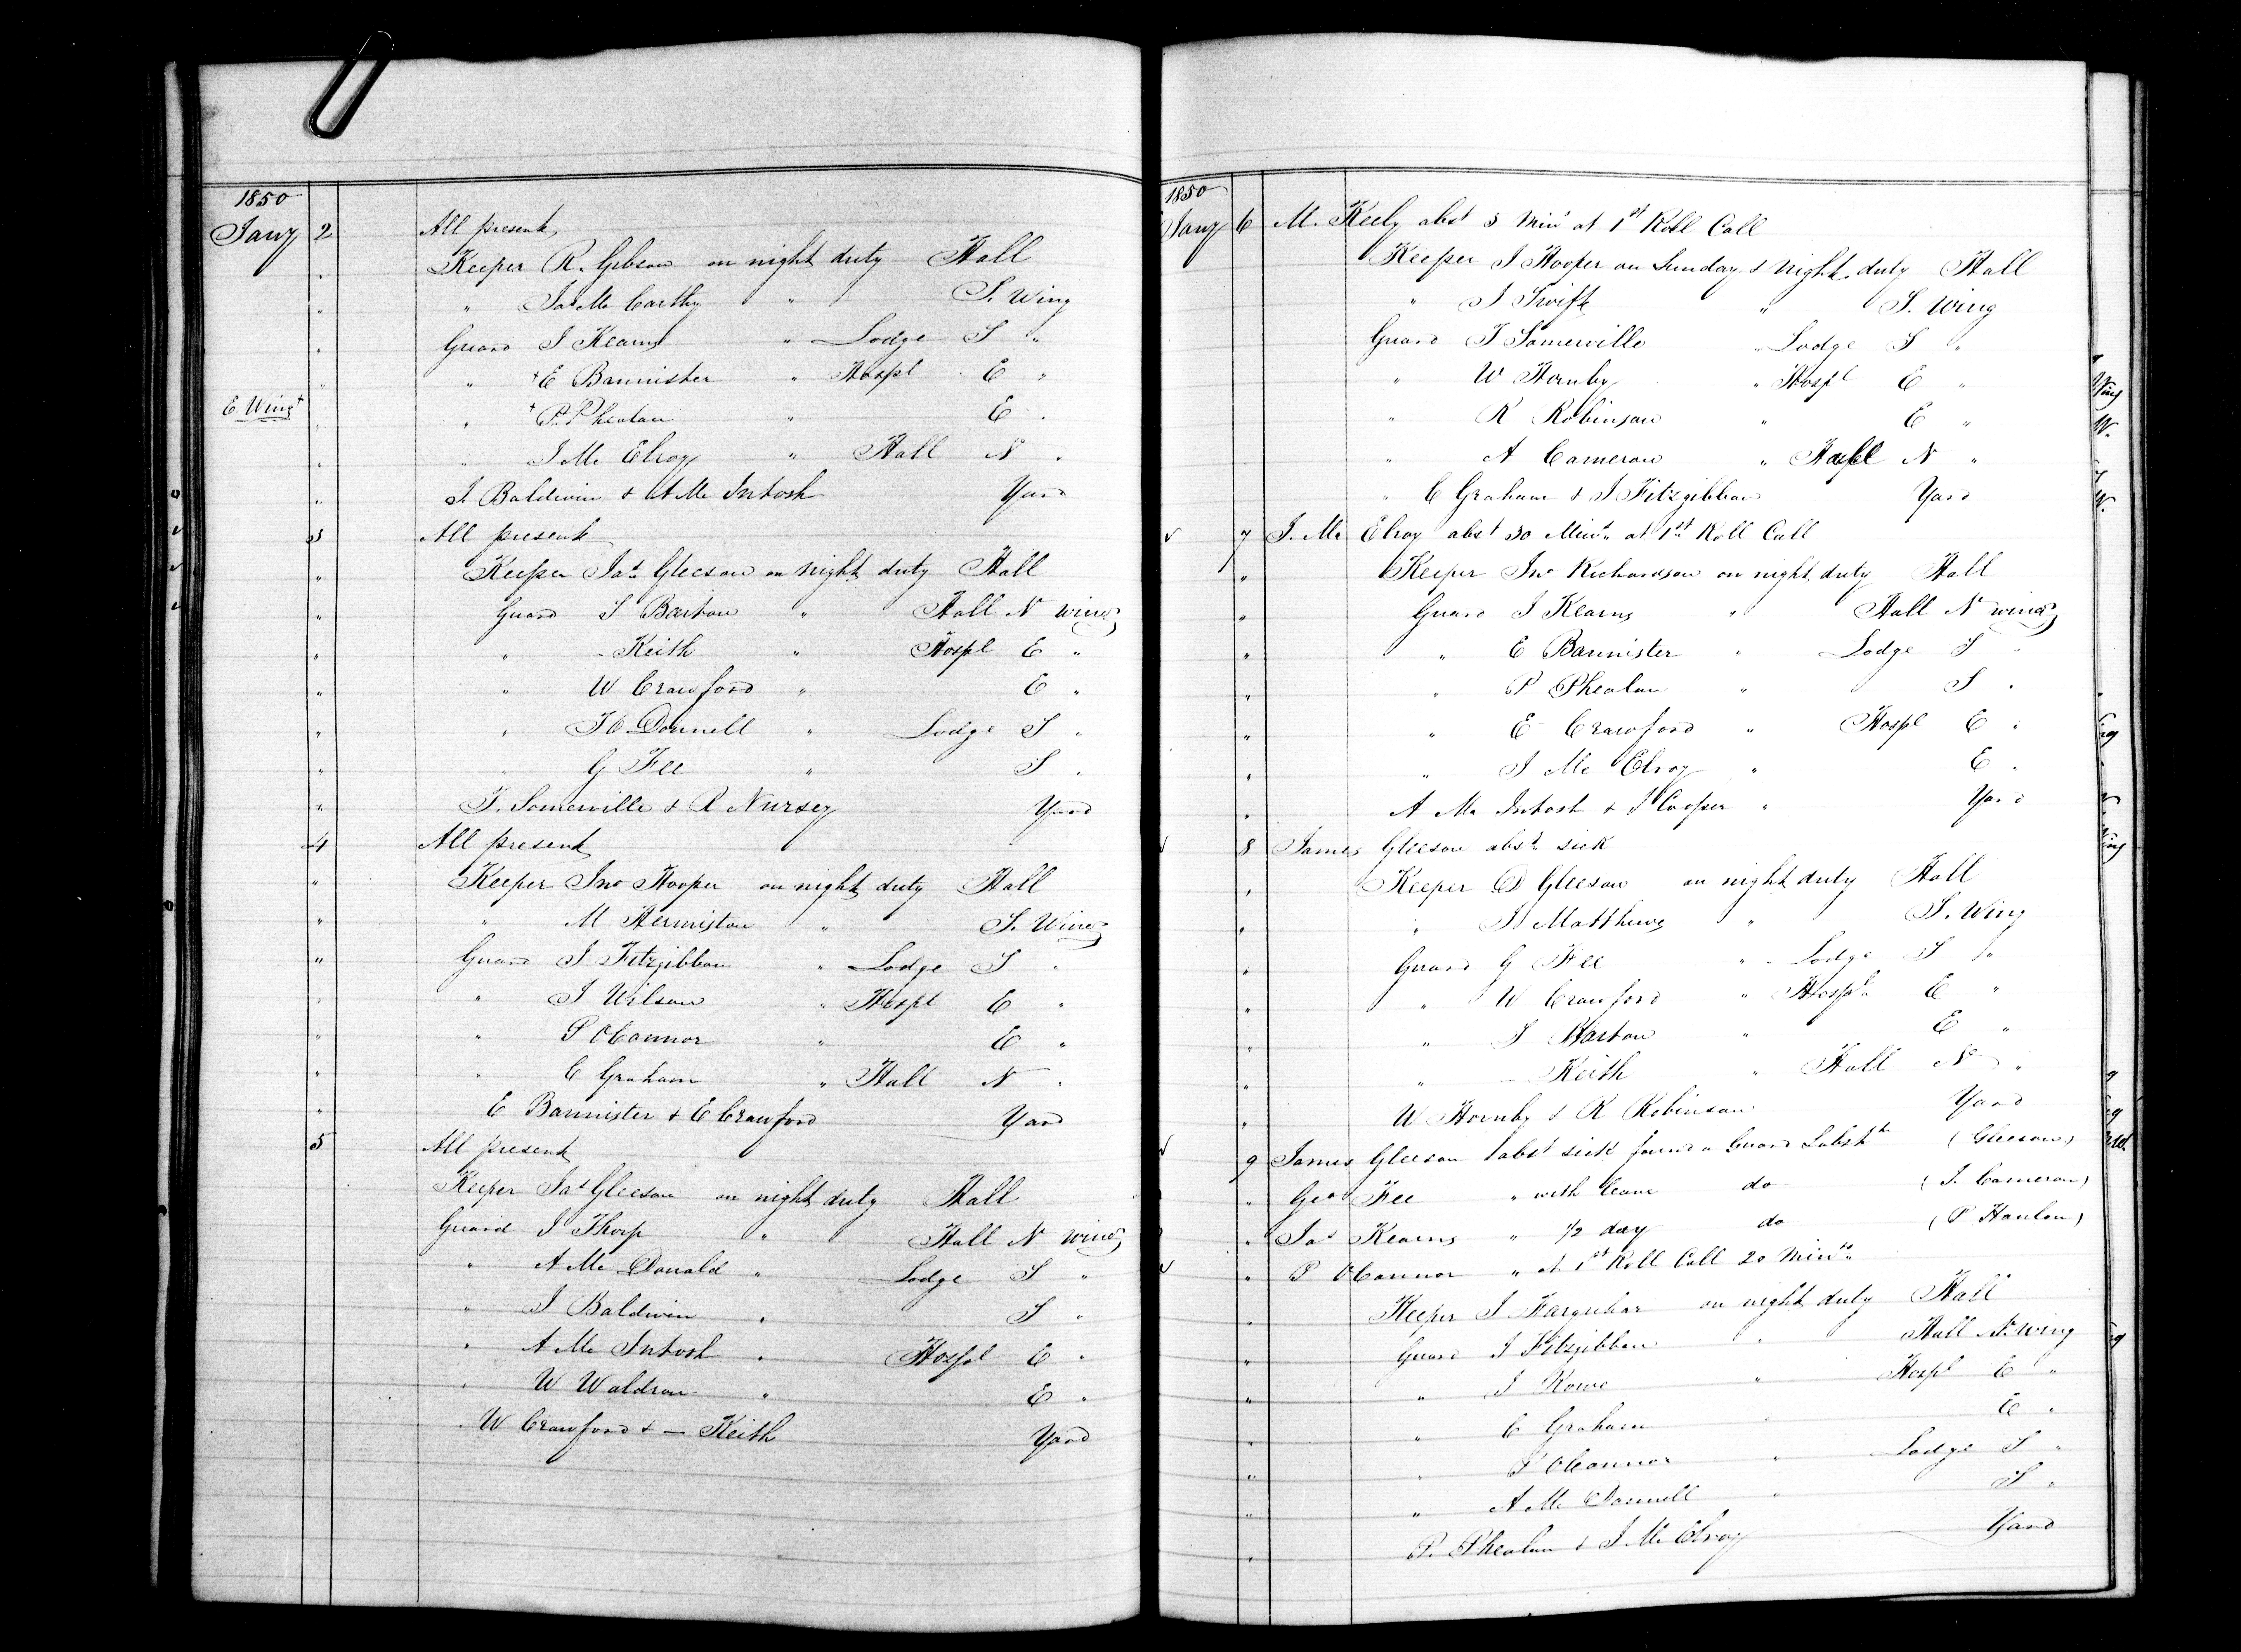 1850
Jany 2 All present
" Keeper R. Gibson on night duty Hall
" " Jas McCarthy " S. Wing
" Guard J Kearns " Lodge S "
" " +E Bannister " Hospl E "
E. Wing+ " " +P. Phealan " E "
" " J McElroy " Hall N "
" J. Baldwin & A McIntosh Yard
3 All present
" Keeper Jas Gleeson on night duty Hall
" Guard J Barton " Hall N wing
" " - Keith " Hospl E "
" " W Crawford " E "
" " J O Donnell " Lodge S "
" " G Fee " S "
" T. Somerville & R Nursey Yard
4 All present
" Keeper Jno Hooper on night duty Hall
" " M Hermiston " S. Wing
" Guard J Fitzgibbon " Lodge S "
" " J Wilson " Hospl E "
" " P OConnor " E "
" " C Graham " Hall N "
" E Bannister & E Crawford Yard
5 All present
Keeper Jas Gleeson on night duty Hall
Guard J Thorp " Hall N wing
" A McDonald " Lodge S "
" J Baldwin " S "
" A McIntosh " Hospl E "
" W Waldron " E "
" W Crawford & - Keith Yard
1850
Jany 6 M. Keely abst 5 Mins at 1st Roll Call
Keeper J Hooper on Sunday & night duty Hall
" J Swift " S. Wing
Guard T Somerville " Lodge S "
" W Hornby " Hospl E "
" R Robinson " E "
" A Cameron " N "
" C Graham & J Fitzgibbon Yard
✓ 7 J. McElroy abst 30 Mins at 1st Roll Call
" Keeper Jno Richardson on night duty Hall
" Guard J Kearns " Hall N wing
" " E Bannister " Lodge S "
" " P Phealan " S "
" " E Crawford " Hospl E "
" " J McElroy " E "
" A McIntosh & J Cooper " Yard
✓ 8 James Gleeson abst sick
" Keeper D Gleeson on night duty Hall
" " J Matthews " S. Wing
" Guard G Fee " Lodge S "
" " W Crawford " Hospl E "
" " J Barton " E "
" " - Keith " Hall N "
" W Hornby & R Robinson Yard
✓ 9 James Gleeson abst sick found a Guard Substte (Gleeson)
" Geo Fee " with leave do (J. Cameron)
" Jas Kearns " 1/2 day do (P Hanlon)
✓ " P OConnor " at 1st Roll Call 20 Mints
" Keeper J Farquhar on night duty Hall
" Guard J Fitzgibbon " Hall N. wing
" " J Rowe " Hospl E "
" " C Graham " E "
" " P OConnor " Lodge S "
" " A McDonnell " S "
" P. Phealan & J McElroy Yard